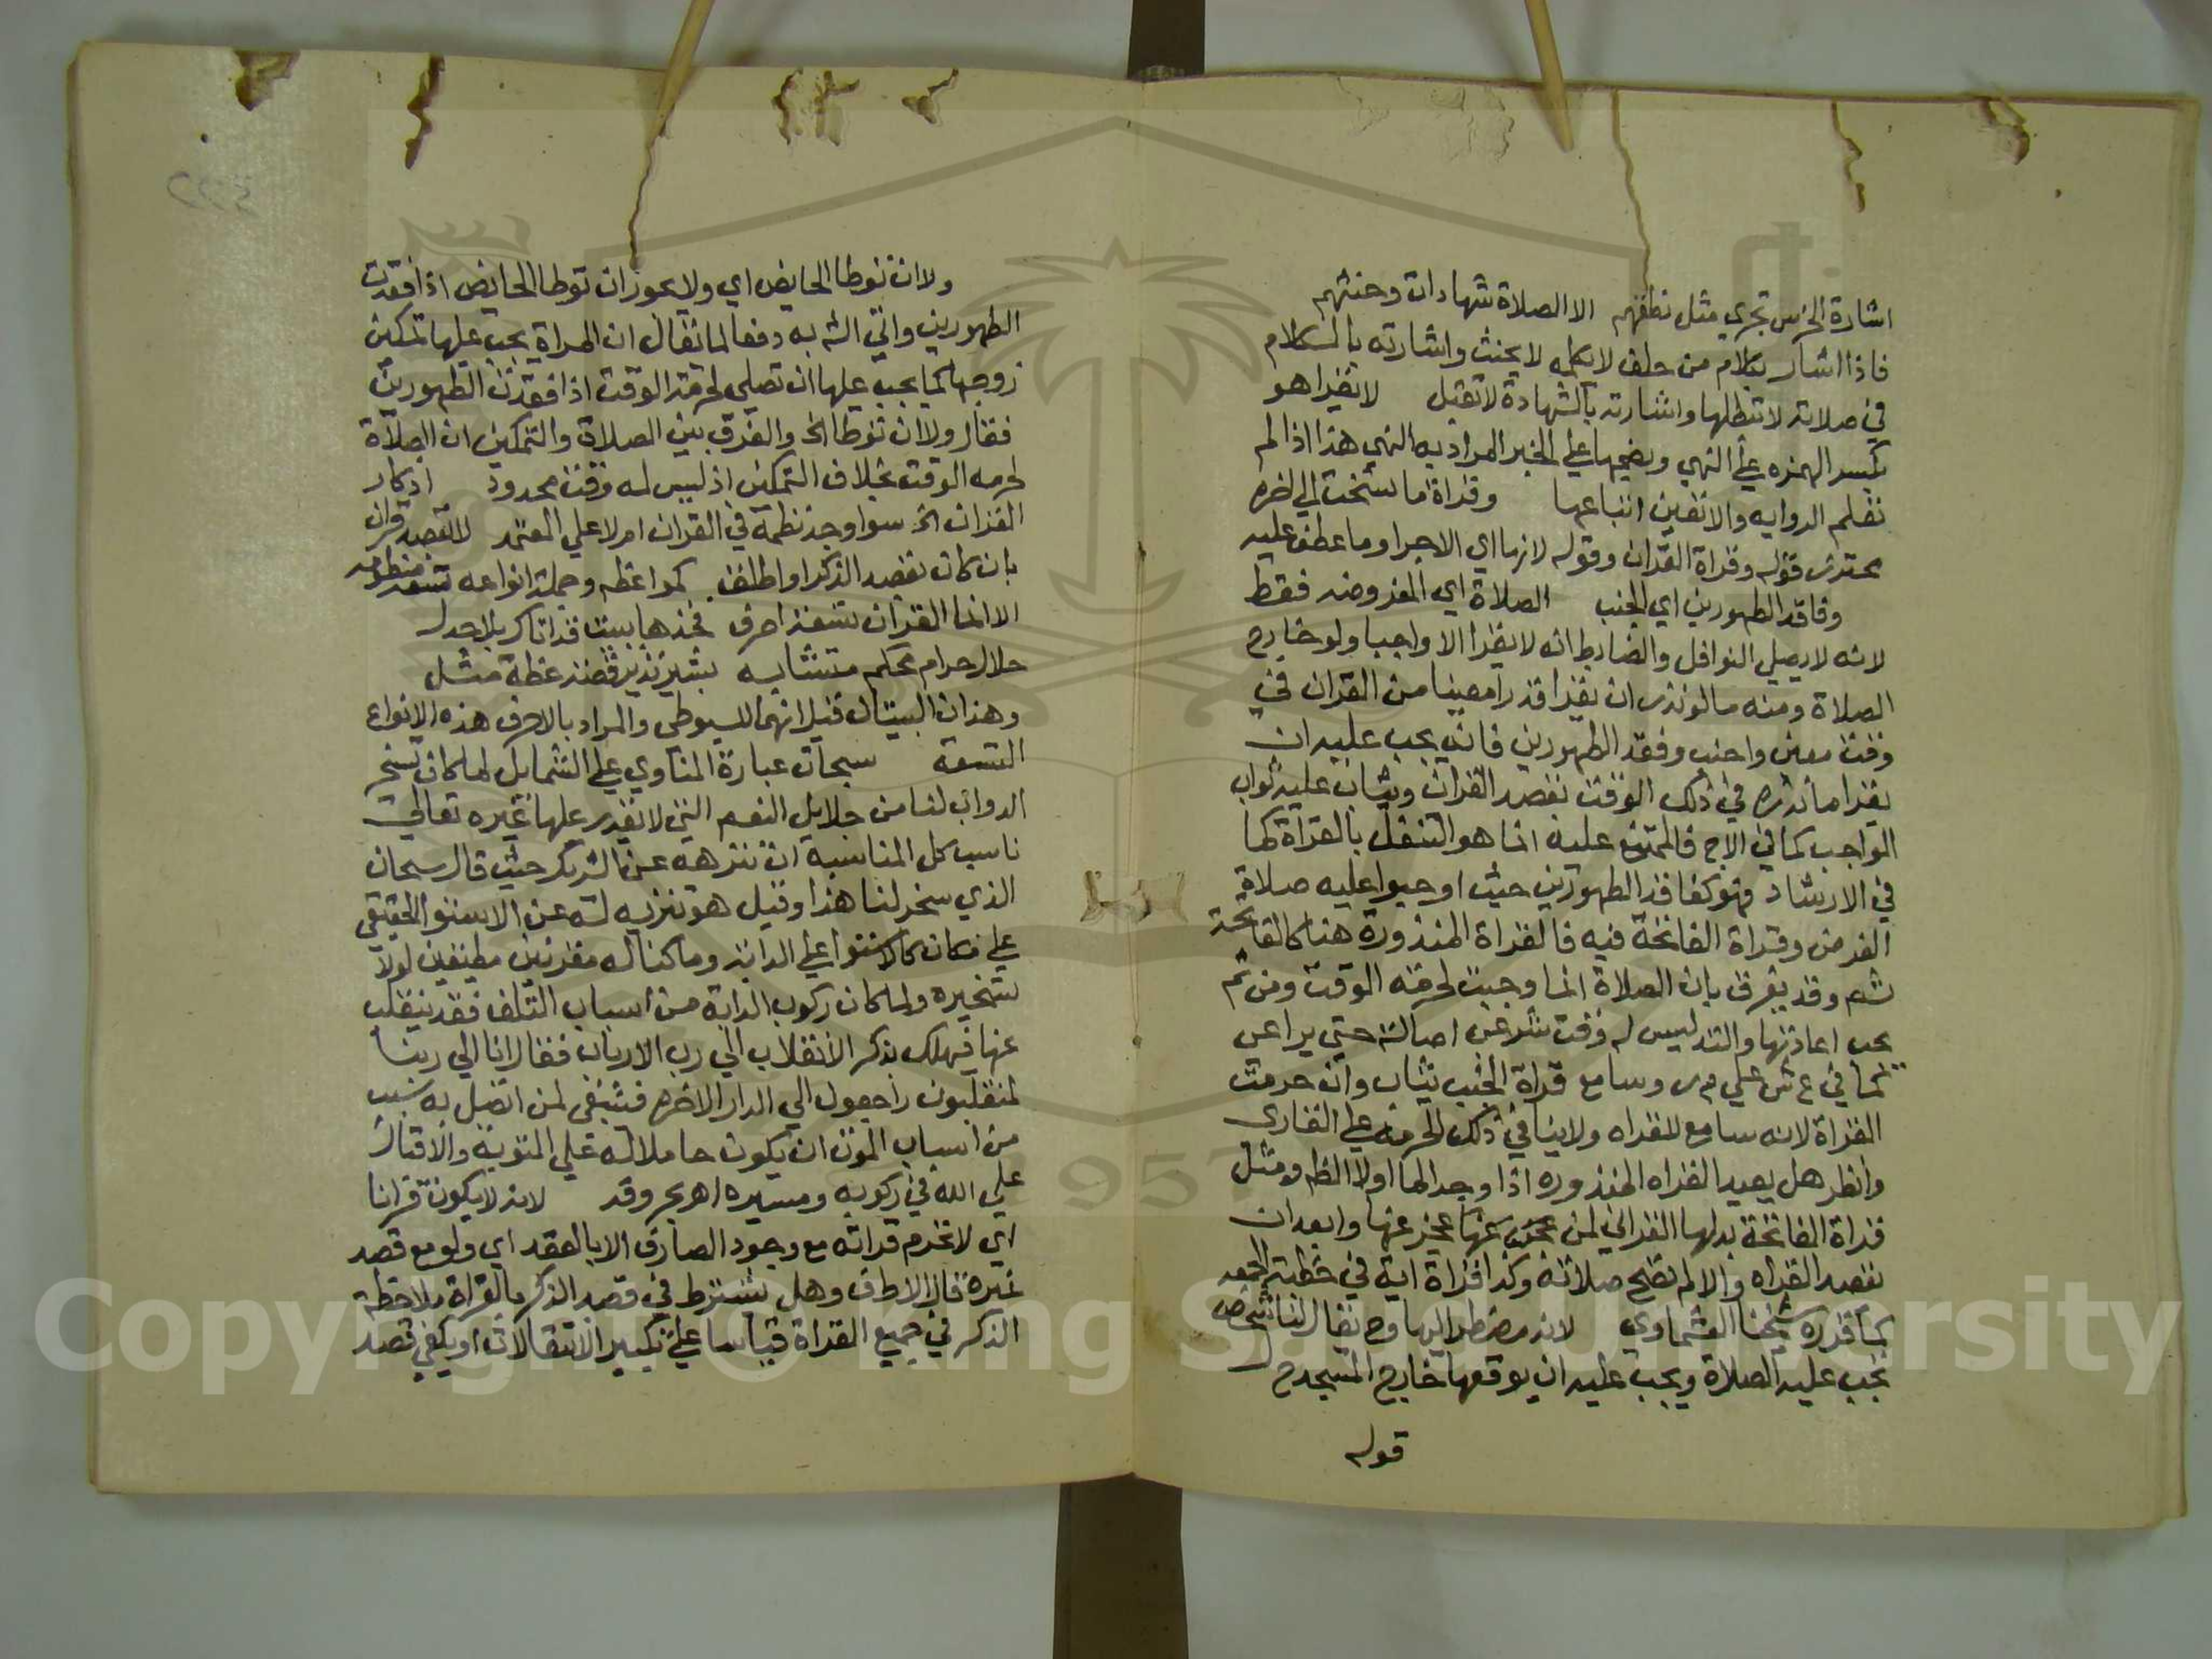 اشارة الخرس تجري مثل نطقهم الا الصلاة شهادات وحنثهم
فاذا اشار بكلام من حلف لا يكلمه لا يحنث واشارته بالكلام
في صلاته لا تبطلها واشارته بالشهادة لا تقبل لا يقرا هو
بكسر الهمزه على النهي وبضمها على الخبر المراد به النهي هذا اذا لم
تعلم الروايه والا تعين اتباعها وقراة ما نسخت الى اخره
محترز قوله وقراة القران وقوله لانها اي الاجرا وما عطف عليه
وفاقد الطهورين اي الجنب الصلاة اي المفروضه فقط
لانه لا يصلي النوافل والضابط انه لا يقرا الا واجبا ولو خارج
الصلاة ومنه ما لو نذر ان يقرا قدرا معينا من القران في
وقت معين واجنب وفقد الطهورين فانه يجب عليه ان
يقرا ما نذره في ذلك الوقت بقصد القران ويثاب عليه ثواب
الواجب كما في الاج فالممتنع عليه انما هو التنفل بالقراة كما
في الارشاد فهو كفاقد الطهورين حيث اوجبوا عليه صلاة
الفرض وقراة الفاتحة فيه فالقراة المنذورة هنا كالفاتحة
ثم وقد يفرق بان الصلاة انما وجبت لحرمة الوقت ومن ثم
يجب اعادتها والنذر ليس له وقت شرعي اصالة حتى يراعى
كما في ع ش على م ر وسامع قراة الجنب يثاب وان حرمت
القراة لانه سامع للقراه ولا ينافي ذلك الحرمة على القارى
وانظر هل يعيد القراه المنذوره اذا وجد الما اولا الظ ومثل
قراة الفاتحة بدلها القراني لمن عجز عنها وابعد ان
بقصد القراه والا لم تصح صلاته وكذا قراة اية في خطبة الجمعه
كما قرره شيخنا العشماوي لانه مضطر اليها وح يقال لنا شخص
تجب عليه الصلاة ويجب عليه ان يوقعها خارج المسجد ح
قوله
ولا ان توطا الحايض اي ولا يجوز ان توطا الحايض اذا فقدت
الطهورين واتي الش به دفعا لما يقال ان المراة يجب عليها تمكين
زوجها كما يجب عليها ان تصلي لحرمة الوقت اذا فقدت الطهورين
فقال ولا ان توطا الخ والفرق بين الصلاة والتمكين ان الصلاة
لحرمه الوقت بخلاف التمكين اذ ليس له وقت محدود اذكار
القران الخ سوا وجد نظمه في القران ام لا على المعتمد لا بقصد قران
بان كان بقصد الذكر او اطلق كمواعظه وجملة انواعه تسعة منظومه
الا انما القران تسعة احرف فخذها ببيت قد اتاك بلا جدل
حلال حرام محكم متشابه بشير نذير قصة عظة مثل
وهذان البيتان قيل انهما للسيوطي والمراد بالاحرف هذه الانواع
التسعة سبحان عبارة المناوي على الشمايل لما كان تسخير
الدواب لنا من جلايل النعم التي لا يقدر عليها غيره تعالى
ناسب كل المناسبه ان ننزهه عن الشريك حيث قال سبحان
الذي سخر لنا هذا وقيل هو تنزيه له عن الاستوا الحقيقي
على مكان كالاستوا على الدابة وما كنا له مقرنين مطيقين لولا
تسخيره ولما كان ركوب الدابة من اسباب التلف فقد ينقلب
عنها فيهلك يذكر الانقلاب الى رب الارباب فقال انا الى ربنا
لمنقلبون راجعون الى الدار الاخره فينبغي لمن اتصل به سبب
من اسباب الموت ان يكون حاملا له على التوبة والاقبال
على الله في ركوبه ومسيره اهـ بحروفه لانه لا يكون قرانا
اي لا تحرم قراته مع وجود الصارف الا بالقصد اي ولو مع قصد
غيره قال الاطف وهل يشترط في قصد الذكر بالقراة ملاحظة
الذكر في جميع القراة قياسا على تكبير الانتقالات او يكفي قصد